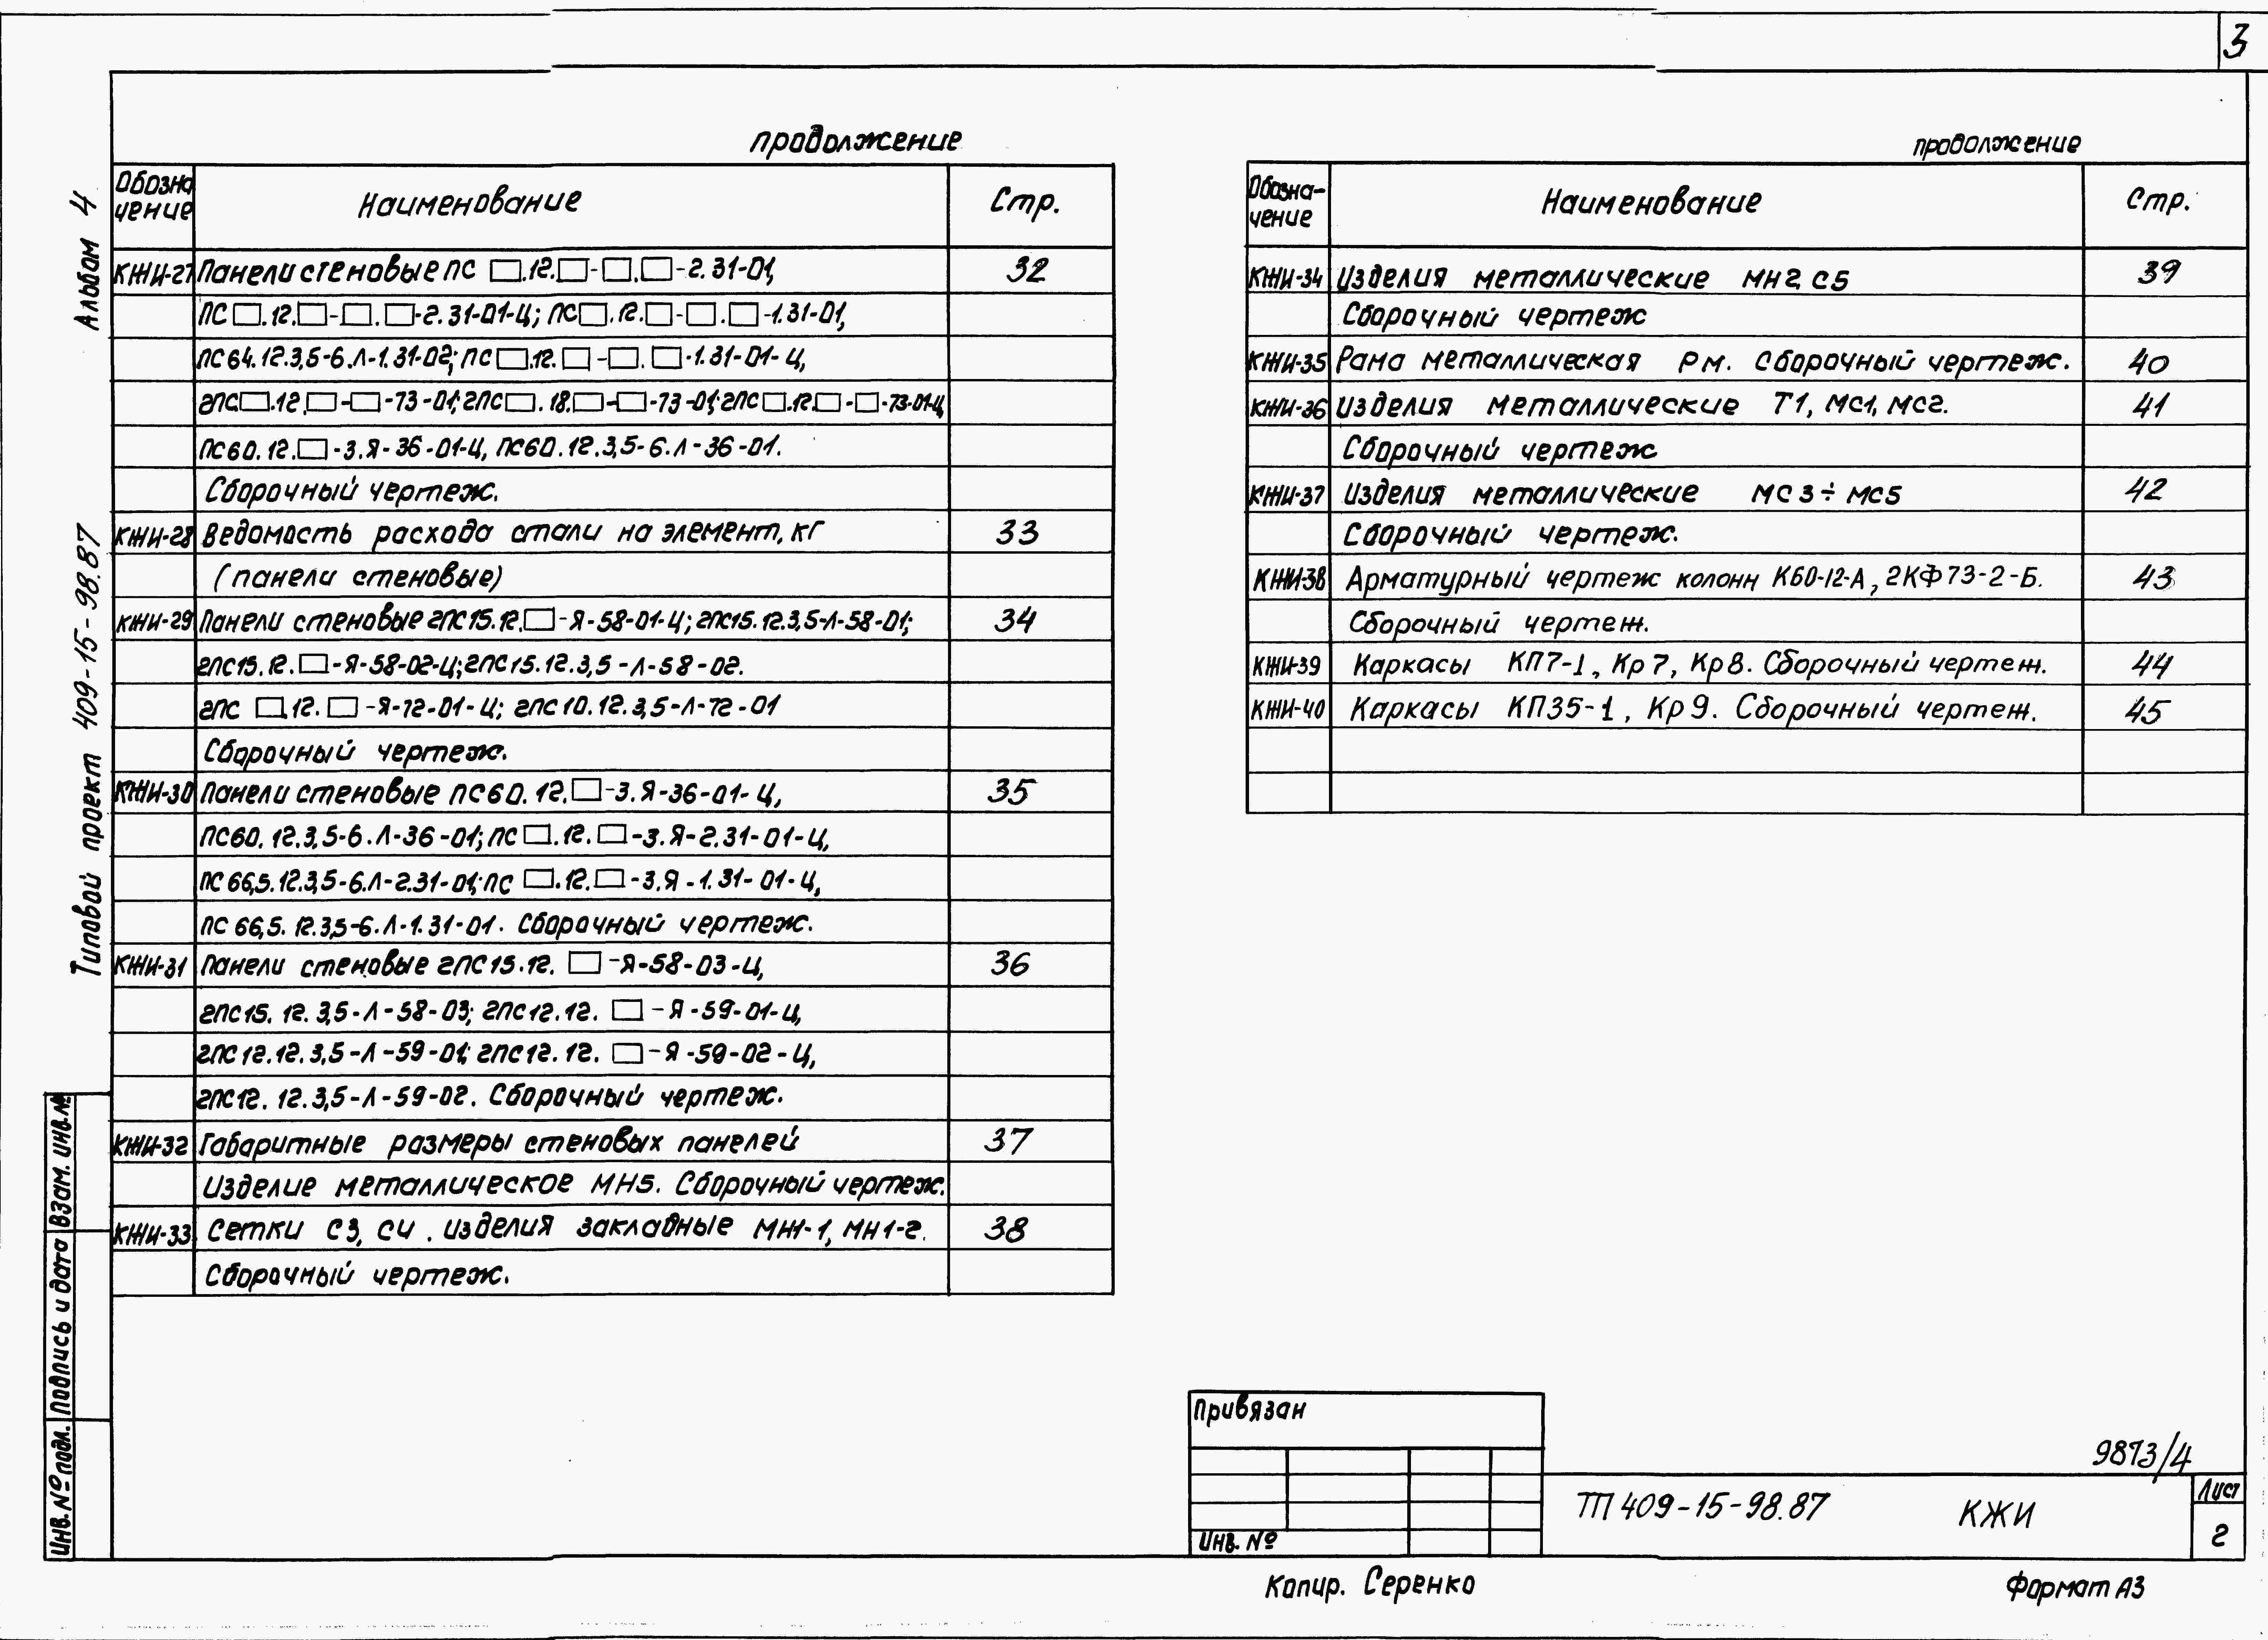 3
Альбом 4
Типовой проект 409-15-98.87
продолжение
Обозна
чение
Наименование
Стр.
КЖИ-27 Панели стеновые ПС □.12.□-□.□-2.31-01, 32
ПС□.12.□-□.□-2.31-01-Ц; ПС□.12.□-□.□-1.31-01,
ПС64.12.3,5-6.Л-1.31-02; ПС□.12.□-□.□-1.31-01-Ц,
2ПС.□.12.□-□-73-01; 2ПС□.18.□-□-73-01; 2ПС□.12.□-□-73-01-Ц
ПС60.12.□-3.Я-36-01-Ц, ПС60.12.3,5-6.Л-36-01.
Сборочный чертеж.
КЖИ-28 Ведомость расхода стали на элемент, кг 33
(панели стеновые)
КЖИ-29 Панели стеновые 2ПС15.12.□-Я-58-01-Ц; 2ПС15.12.3,5-Л-58-01; 34
2ПС15.12.□-Я-58-02-Ц; 2ПС15.12.3,5-Л-58-02.
2ПС □.12.□-Я-72-01-Ц; 2ПС10.12.3,5-Л-72-01
Сборочный чертеж.
КЖИ-30 Панели стеновые ПС60.12.□-3.Я-36-01-Ц, 35
ПС60.12.3,5-6.Л-36-01; ПС □.12.□-3.Я-2.31-01-Ц,
ПС66,5.12.3,5-6.Л-2.31-01; ПС □.12.□-3.Я-1.31-01-Ц,
ПС 66,5.12.3,5-6.Л-1.31-01. Сборочный чертеж.
КЖИ-31 Панели стеновые 2ПС15.12. □-Я-58-03-Ц, 36
2ПС15.12.3,5-Л-58-03; 2ПС12.12. □-Я-59-01-Ц,
2ПС12.12.3,5-Л-59-01; 2ПС12.12. □-Я-59-02-Ц,
2ПС12.12.3,5-Л-59-02. Сборочный чертеж.
КЖИ-32 Габаритные размеры стеновых панелей 37
Изделие металлическое МН5. Сборочный чертеж.
КЖИ-33 Сетки С3, С4. изделия закладные МН1-1, МН1-2. 38
Сборочный чертеж.
продолжение
Обозна-
чение
Наименование
Стр.
КЖИ-34 Изделия металлические МН2, С5 39
Сборочный чертеж
КЖИ-35 Рама металлическая Рм. Сборочный чертеж. 40
КЖИ-36 Изделия металлические Т1, МС1, МС2. 41
Сборочный чертеж
КЖИ-37 Изделия металлические МС3÷МС5 42
Сборочный чертеж.
КЖИ-38 Арматурный чертеж колонн К60-12-А, 2КФ73-2-Б. 43
Сборочный чертеж.
КЖИ-39 Каркасы КП7-1, Кр7, Кр8. Сборочный чертеж. 44
КЖИ-40 Каркасы КП35-1, Кр9. Сборочный чертеж. 45
Инв. № подл. Подпись и дата Взам. инв. №
Привязан
Инв. №
9873/4
ТП 409-15-98.87 КЖИ
Лист
2
Копир. Серенко
Формат А3